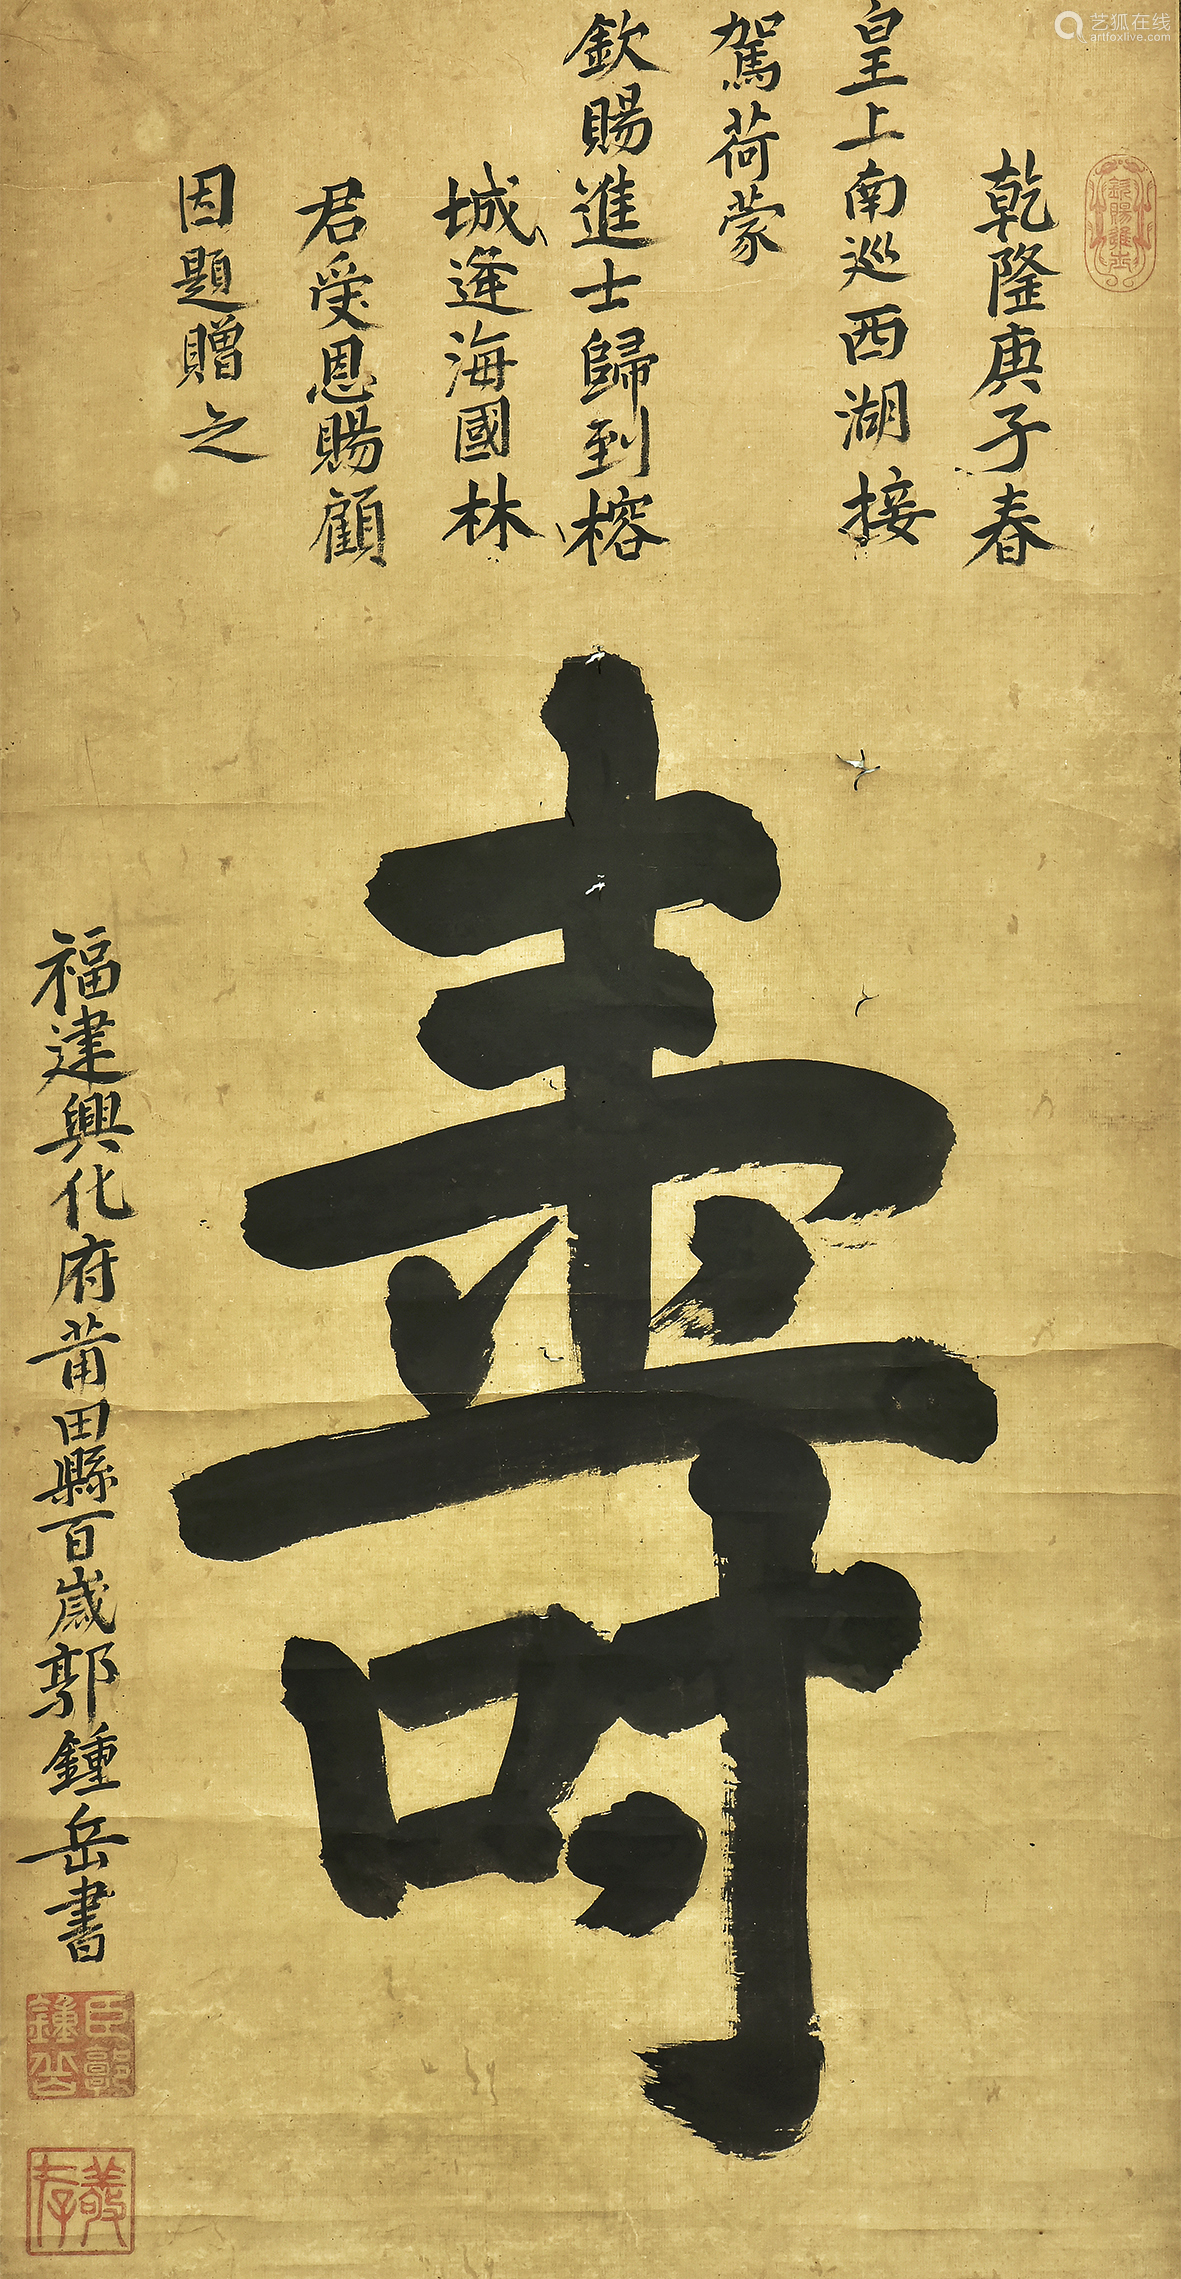 乾隆庚子春
皇上南巡西湖接
駕荷蒙
欽賜進士歸到榕
城逢海國林
君受恩賜顧
因題贈之
壽
福建興化府莆田縣百歲郭鍾岳書
欽賜進士
臣郭鍾岳
艺狐在线
artfoxlive.com